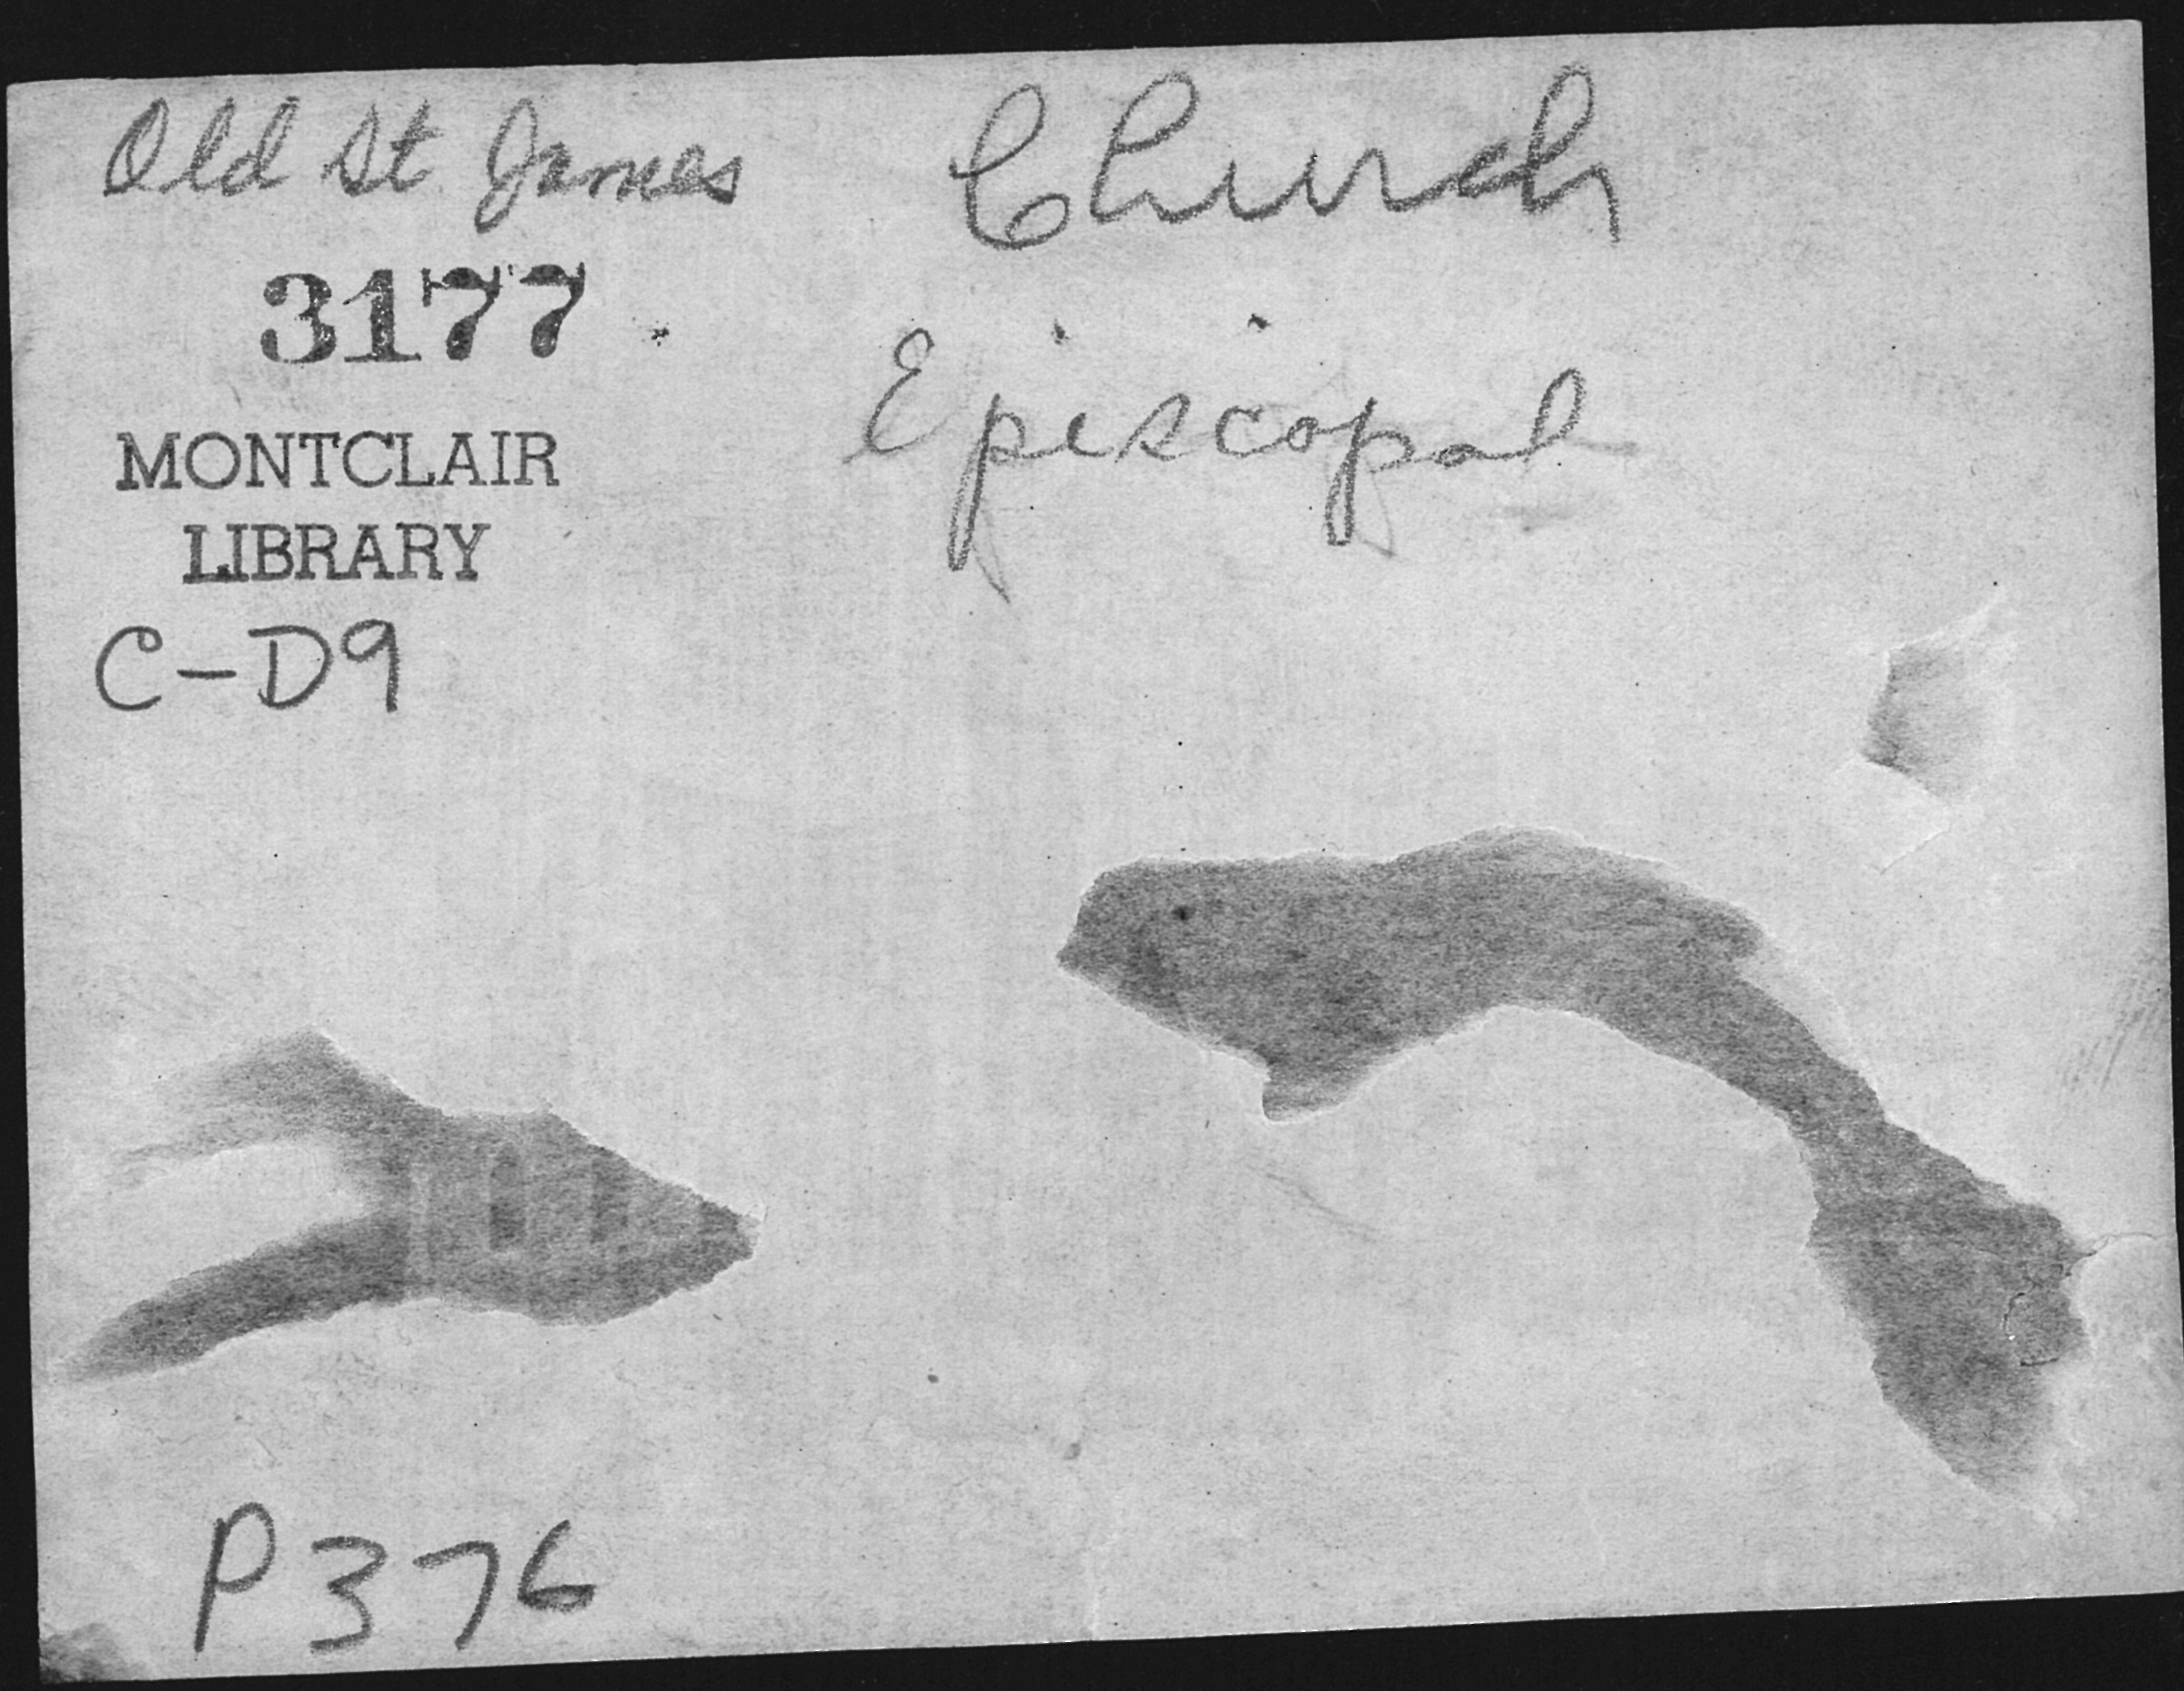 Old St James Church
3177
Episcopal
MONTCLAIR
LIBRARY
C-D9
P376